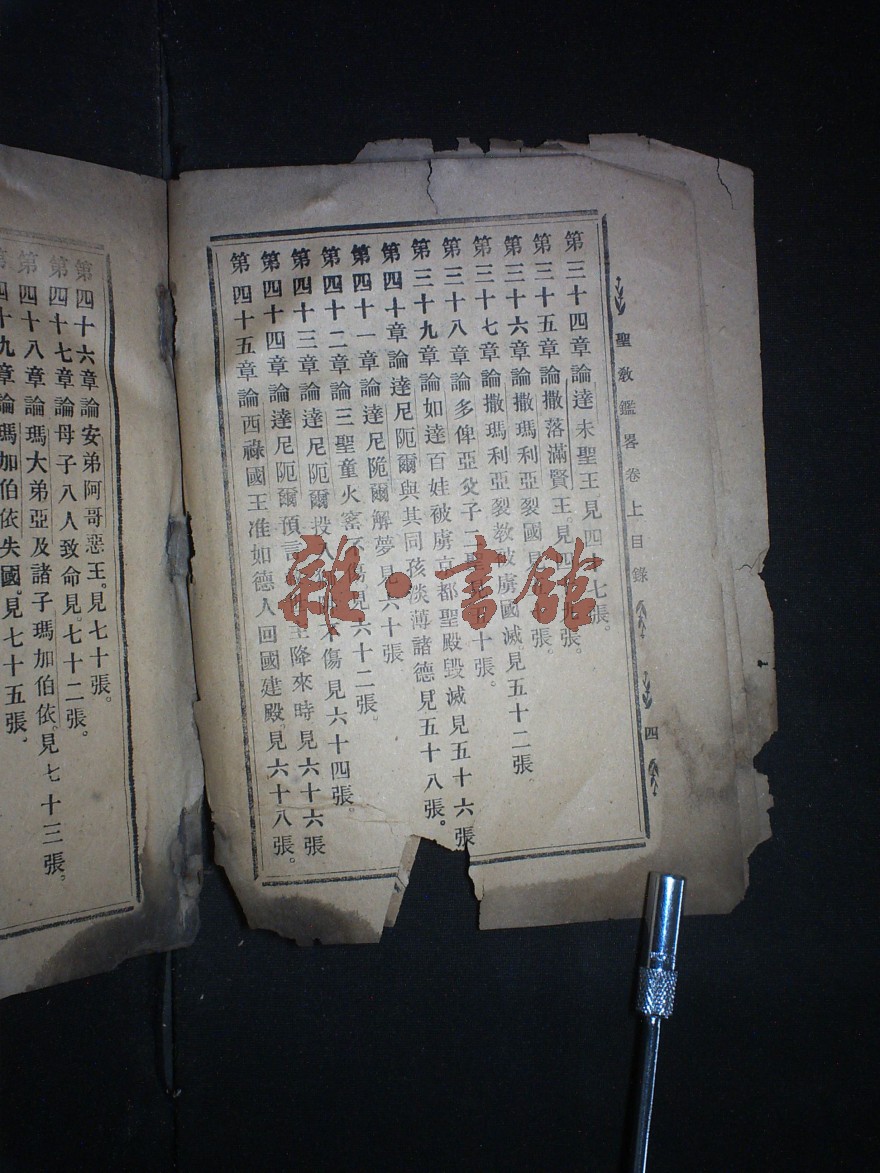 聖教鑑畧卷上目錄 四
第三十四章論達未聖王。見四十七張。
第三十五章論撒落滿賢王。見四十九張。
第三十六章論撒瑪利亞裂國見張。
第三十七章論撒瑪利亞裂教被虜國滅。見五十二張。
第三十八章論多俾亞父子二見五十張。
第三十九章論如達百娃被虜京都聖殿毀滅見五十六張
第四十章論達尼阨爾與其同孩淡薄諸德見五十八張。
第四十一章論達尼阨爾解夢見六十張
第四十二章論三聖童火窰不傷見六十二張。
第四十三章論達尼阨爾投入不傷見六十四張。
第四十四章論達尼阨爾預言主降來時見六十六張
第四十五章論西祿國王准如德人回國建殿。見六十八張。
第四十六章論安弟阿哥惡王。見七十張。
第四十七章論母子八人致命見。七十二張。
第四十八章論瑪大弟亞及諸子瑪加伯依。見七十三張。
第四十九章論瑪加伯依失國。見七十五張。
雜·書館